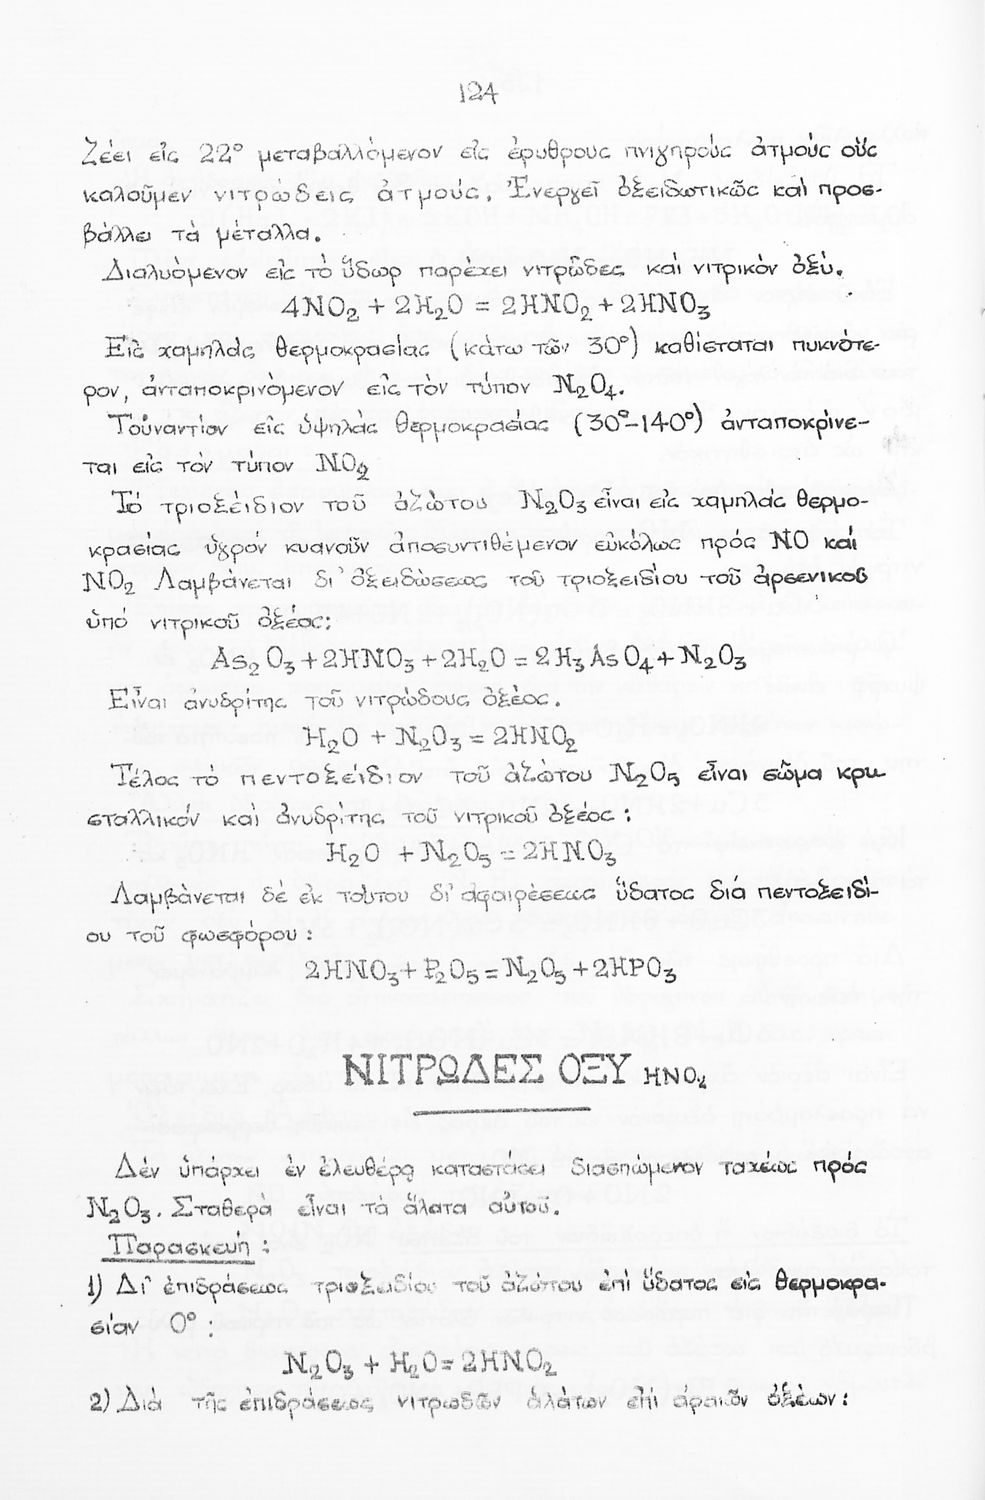 124
Ζέει εἰς 22° μεταβαλλόμενον εἰς ἐρυθρούς πνιγηρούς ἀτμούς οὕς
καλοῦμεν νιτρώδεις ἀτμούς. Ἐνεργεῖ ὀξειδωτικῶς καί προσ-
βάλλει τά μέταλλα.
Διαλυόμενον εἰς τό ὕδωρ παρέχει νιτρῶδες καί νιτρικόν ὀξύ.
4NO₂ + 2H₂O = 2HNO₂ + 2HNO₃
Εἰς χαμηλάς θερμοκρασίας (κάτω τῶν 30°) καθίσταται πυκνότε-
ρον, ἀνταποκρινόμενον εἰς τόν τύπον N₂O₄.
Τοὐναντίον εἰς ὑψηλάς θερμοκρασίας (30°-140°) ἀνταποκρίνε-
ται εἰς τόν τύπον NO₂
Τό τριοξείδιον τοῦ ἀζώτου N₂O₃ εἶναι εἰς χαμηλάς θερμο-
κρασίας ὑγρόν κυανοῦν ἀποσυντιθέμενον εὐκόλως πρός NO καί
NO₂ Λαμβάνεται δι' ὀξειδώσεως τοῦ τριοξειδίου τοῦ ἀρσενικοῦ
ὑπό νιτρικοῦ ὀξέος:
As₂O₃ + 2HNO₃ + 2H₂O = 2H₃AsO₄ + N₂O₃
Εἶναι ἀνυδρίτης τοῦ νιτρώδους ὀξέος.
H₂O + N₂O₃ = 2HNO₂
Τέλος τό πεντοξείδιον τοῦ ἀζώτου N₂O₅ εἶναι σῶμα κρυ-
σταλλικόν καί ἀνυδρίτης τοῦ νιτρικοῦ ὀξέος:
H₂O + N₂O₅ = 2HNO₃
Λαμβάνεται δέ ἐκ τούτου δι' ἀφαιρέσεως ὕδατος διά πεντοξειδί-
ου τοῦ φωσφόρου:
2HNO₃ + P₂O₅ = N₂O₅ + 2HPO₃
ΝΙΤΡΩΔΕΣ ΟΞΥ HNO₂
Δέν ὑπάρχει ἐν ἐλευθέρᾳ καταστάσει διασπώμενον ταχέως πρός
N₂O₃. Σταθερά εἶναι τά ἅλατα αὐτοῦ.
Παρασκευή:
1) Δι' ἐπιδράσεως τριοξειδίου τοῦ ἀζώτου ἐπί ὕδατος εἰς θερμοκρα-
σίαν 0°:
N₂O₃ + H₂O = 2HNO₂
2) Διά τῆς ἐπιδράσεως νιτρωδῶν ἁλάτων ἐπί ἀραιῶν ὀξέων: